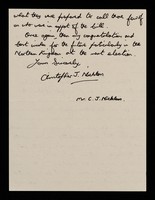 what they are prepared to call those
who are in support of the bill.
Once again, then my congratulations and
best wishes for the future particularly in the
Northern Kingdom at the next election.
Yours Sincerely,
Christopher J.
Mr. C. J.